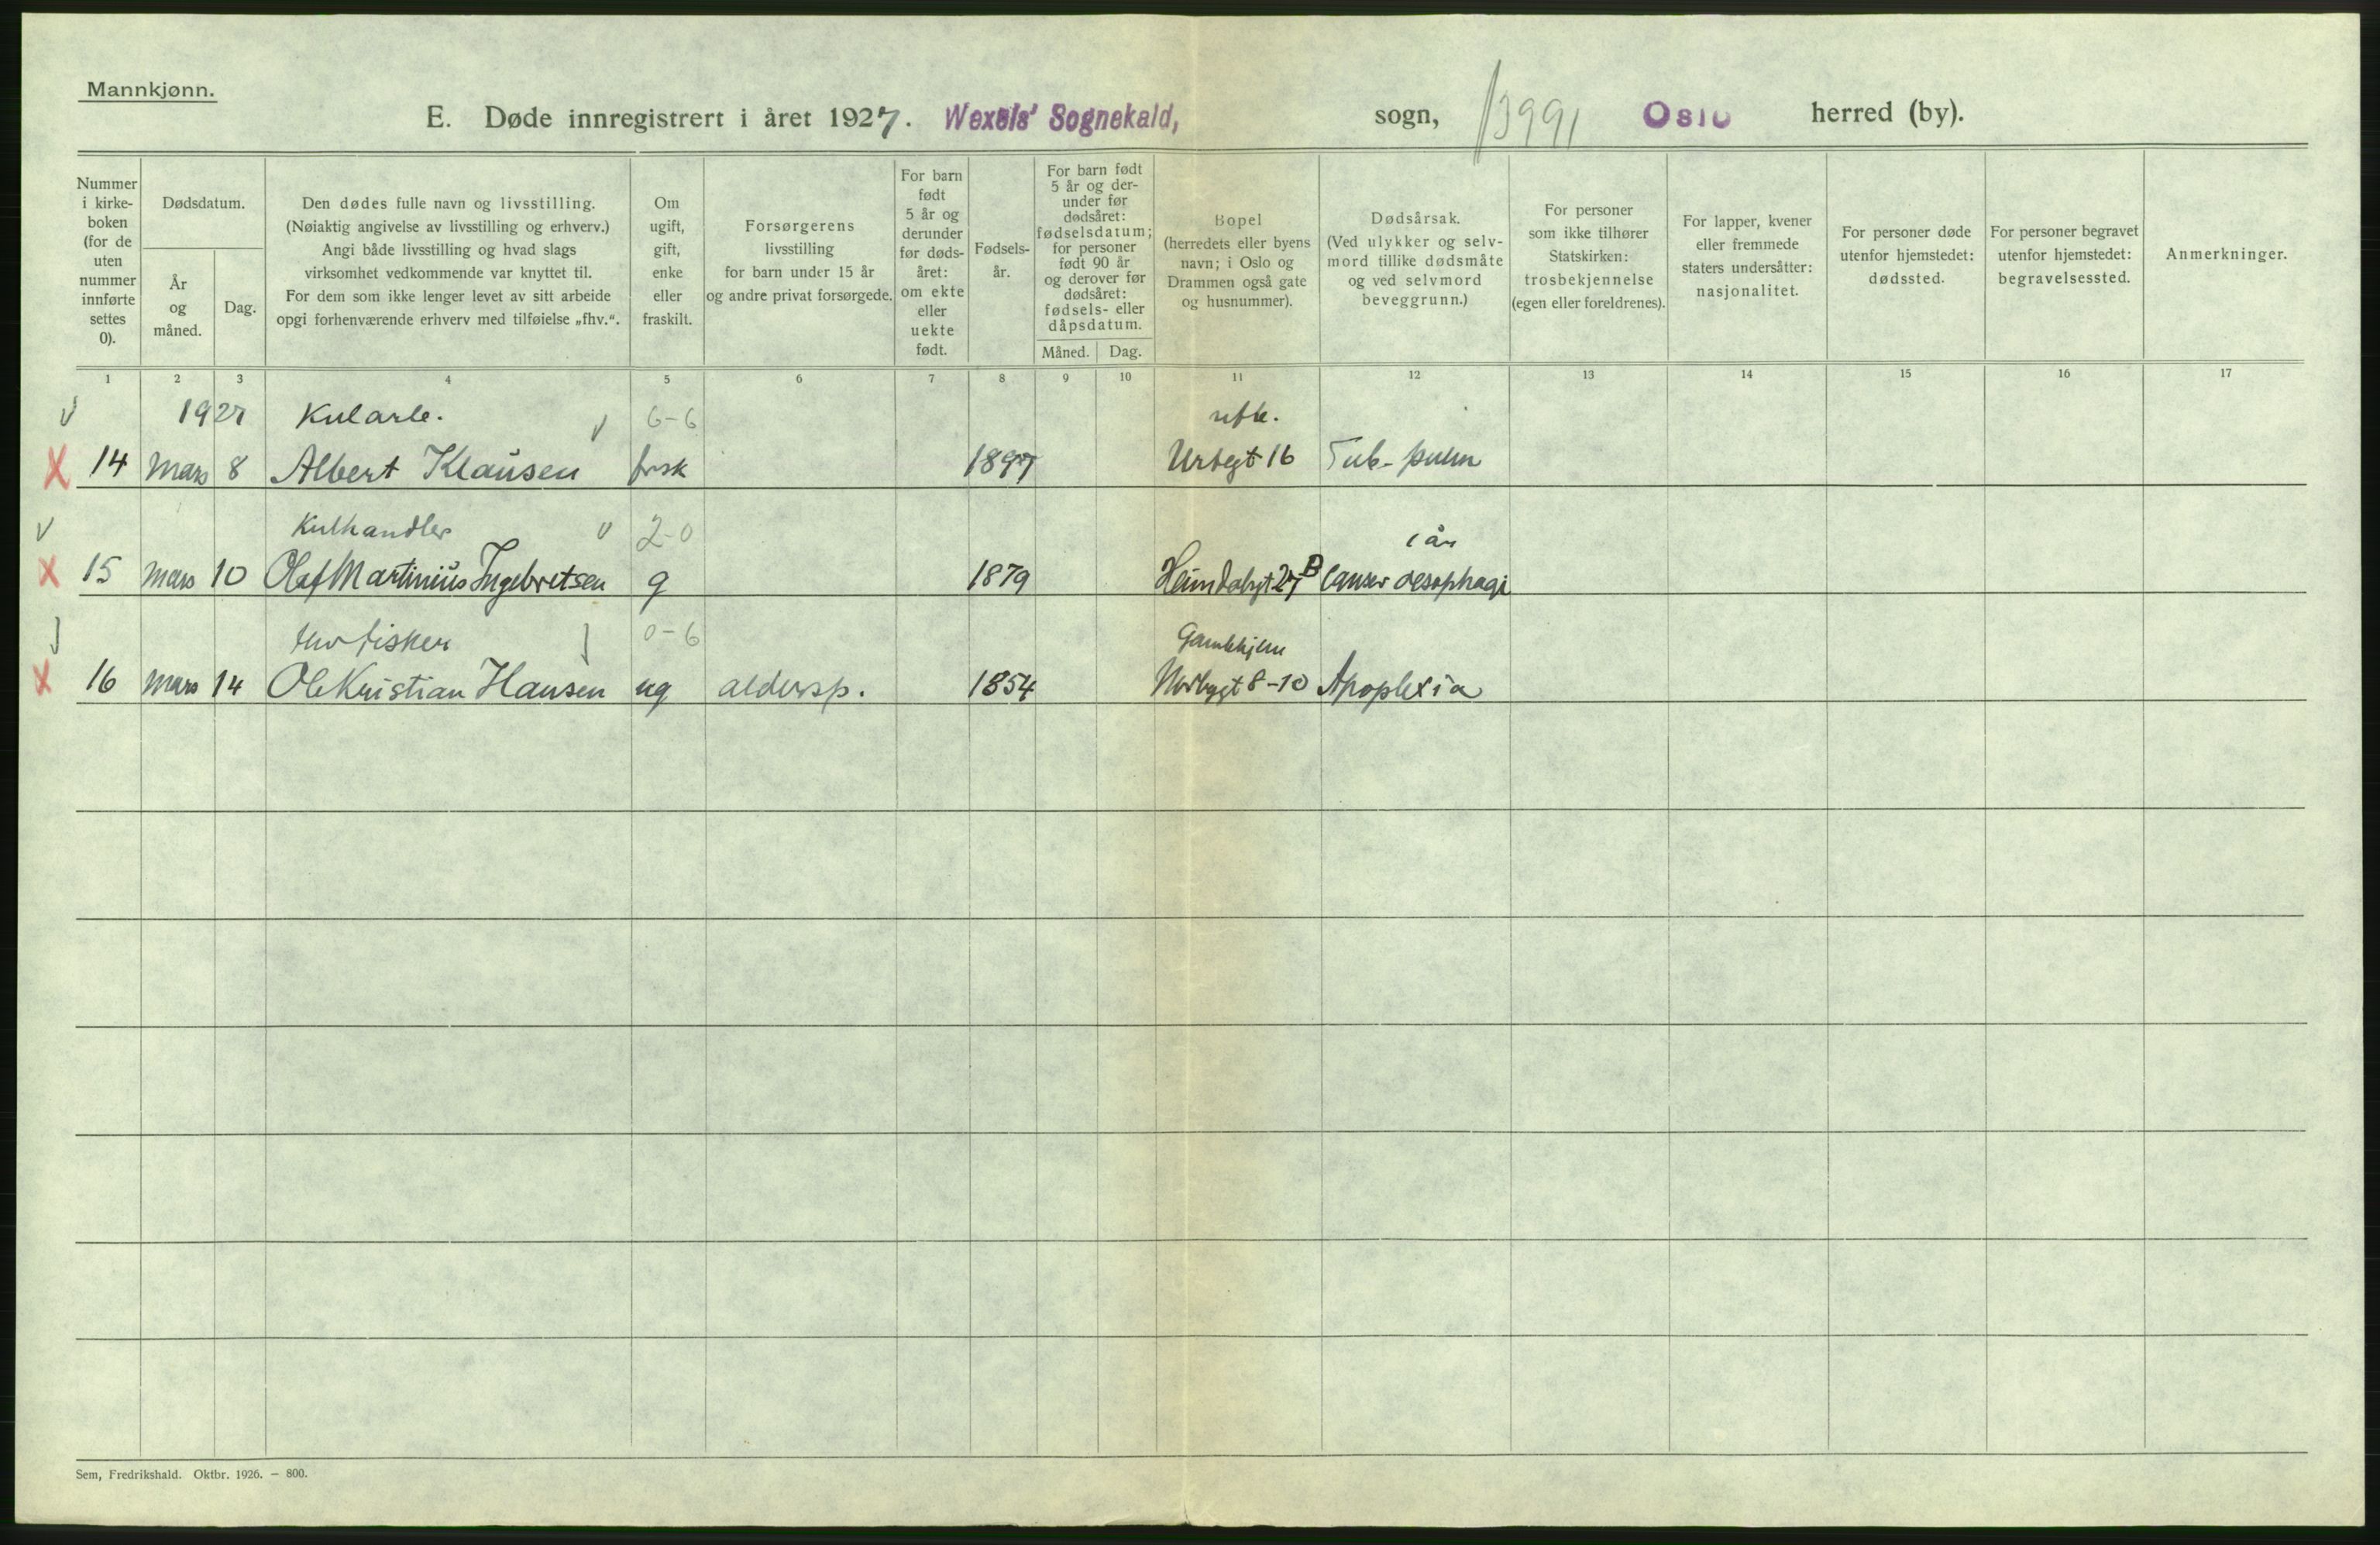 Mannkjønn.
E. Døde innregistrert i året 1927. Wexels' Sognekald, sogn, 3991 Oslo herred (by).
Nummer
i kirke-
boken
(for de
uten
nummer
innførte
settes
0).
Dødsdatum.
År
og
måned.
Dag.
Den dødes fulle navn og livsstilling.
(Nøiaktig angivelse av livsstilling og erhverv.)
Angi både livsstilling og hvad slags
virksomhet vedkommende var knyttet til.
For dem som ikke lenger levet av sitt arbeide
opgi forhenværende erhverv med tilføielse „fhv.“.
Om
ugift,
gift,
enke
eller
fraskilt.
Forsørgerens
livsstilling
for barn under 15 år
og andre privat forsørgede.
For barn
født
5 år og
derunder
før døds-
året:
om ekte
eller
uekte
født.
Fødsels-
år.
For barn født
5 år og der-
under før
dødsåret:
fødselsdatum;
for personer
født 90 år
og derover før
dødsåret:
fødsels- eller
dåpsdatum.
Måned. Dag.
Bopel
(herredets eller byens
navn; i Oslo og
Drammen også gate
og husnummer).
Dødsårsak.
(Ved ulykker og selv-
mord tillike dødsmåte
og ved selvmord
beveggrunn.)
For personer
som ikke tilhører
Statskirken:
trosbekjennelse
(egen eller foreldrenes).
For lapper, kvener
eller fremmede
staters undersåtter:
nasjonalitet.
For personer døde
utenfor hjemstedet:
dødssted.
For personer begravet
utenfor hjemstedet:
begravelsessted.
Anmerkninger.
1 2 3 4 5 6 7 8 9 10 11 12 13 14 15 16 17
1927 Kularb. 6-6
14 Mars 8 Albert Klausen frsk 1897 Urtegt 16 Tub. pulm
Kulhandler 2-0 1 år
15 Mars 10 Olaf Martinius Ingebretsen g 1879 Heimdalsgt 27 B Cancer oesophagi
fhv fisker 0-6 Gamlehjem
16 Mars 14 Ole Kristian Hansen ug aldersp. 1854 Norbygt 8-10 Apoplexia
Sem, Fredrikshald. Oktbr. 1926. — 800.